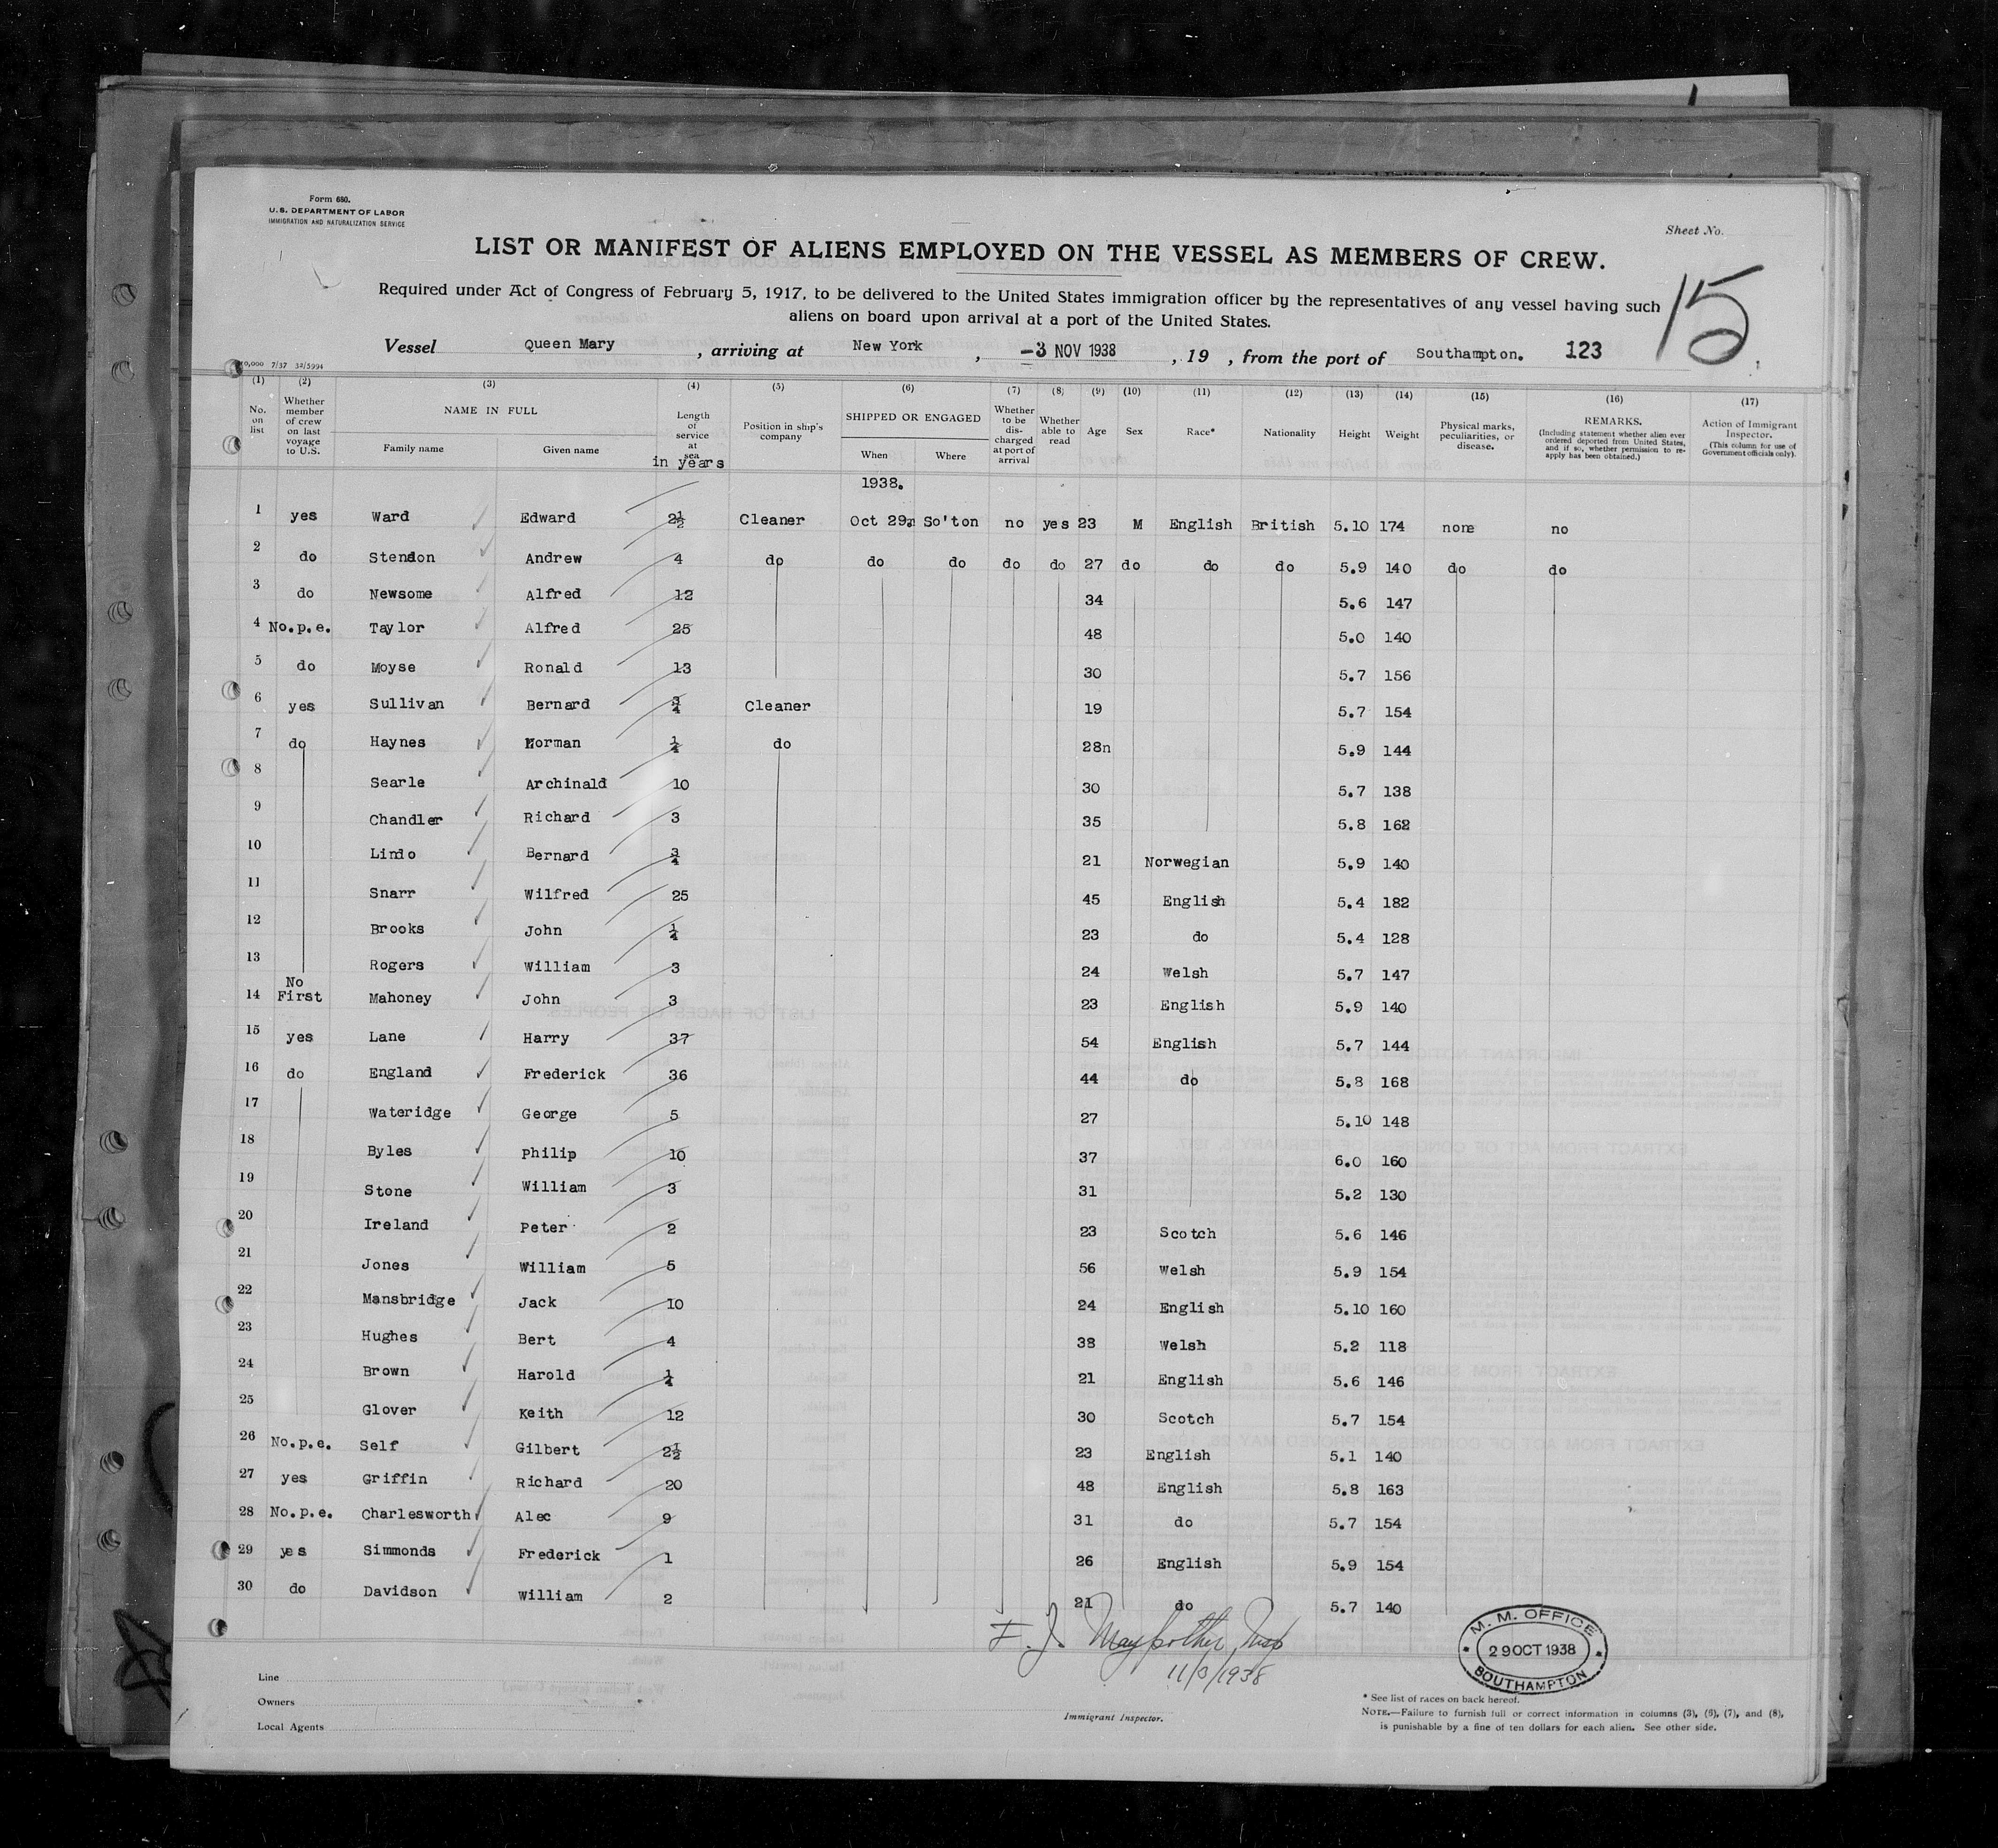 Form 680.
U.S. DEPARTMENT OF LABOR
IMMIGRATION AND NATURALIZATION SERVICE
Sheet No.
LIST OR MANIFEST OF ALIENS EMPLOYED ON THE VESSEL AS MEMBERS OF CREW.
15
Required under Act of Congress of February 5, 1917, to be delivered to the United States immigration officer by the representatives of any vessel having such
aliens on board upon arrival at a port of the United States.
Vessel Queen Mary , arriving at New York , -3 NOV 1938 , 19 , from the port of Southampton. 123
(1) (2) (3) (4) (5) (6) (7) (8) (9) (10) (11) (12) (13) (14) (15) (16) (17)
No. on list
Whether member of crew on last voyage to U.S.
NAME IN FULL
Family name Given name
Length of service at sea in years
Position in ship's company
SHIPPED OR ENGAGED
When Where
Whether to be discharged at port of arrival
Whether able to read
Age Sex Race* Nationality Height Weight
Physical marks, peculiarities, or disease.
REMARKS.
(Including statement whether alien ever ordered deported from United States, and if so, whether permission to re-apply has been obtained.)
Action of Immigrant Inspector.
(This column for use of Government officials only).
1938.
1 yes Ward Edward 2½ Cleaner Oct 29 So'ton no yes 23 M English British 5.10 174 none no
2 do Stendon Andrew 4 do do do do do 27 do do do 5.9 140 do do
3 do Newsome Alfred 12 34 5.6 147
4 No.p.e. Taylor Alfred 25 48 5.0 140
5 do Moyse Ronald 13 30 5.7 156
6 yes Sullivan Bernard ¾ Cleaner 19 5.7 154
7 do Haynes Norman ¼ do 28n 5.9 144
8 Searle Archinald 10 30 5.7 138
9 Chandler Richard 3 35 5.8 162
10 Lindo Bernard ¾ 21 Norwegian 5.9 140
11 Snarr Wilfred 25 45 English 5.4 182
12 Brooks John ¼ 23 do 5.4 128
13 Rogers William 3 24 Welsh 5.7 147
14 No First Mahoney John 3 23 English 5.9 140
15 yes Lane Harry 37 54 English 5.7 144
16 do England Frederick 36 44 do 5.8 168
17 Wateridge George 5 27 5.10 148
18 Byles Philip 10 37 6.0 160
19 Stone William 3 31 5.2 130
20 Ireland Peter 2 23 Scotch 5.6 146
21 Jones William 5 56 Welsh 5.9 154
22 Mansbridge Jack 10 24 English 5.10 160
23 Hughes Bert 4 38 Welsh 5.2 118
24 Brown Harold ¼ 21 English 5.6 146
25 Glover Keith 12 30 Scotch 5.7 154
26 No.p.e. Self Gilbert 2½ 23 English 5.1 140
27 yes Griffin Richard 20 48 English 5.8 163
28 No.p.e. Charlesworth Alec 9 31 do 5.7 154
29 yes Simmonds Frederick 1 26 English 5.9 154
30 do Davidson William 2 21 do 5.7 140
F. J. Insp
11/3/1938
M. M. OFFICE
29 OCT 1938
SOUTHAMPTON
Line
Owners
Local Agents
Immigrant Inspector.
* See list of races on back hereof.
NOTE.—Failure to furnish full or correct information in columns (3), (6), (7), and (8),
is punishable by a fine of ten dollars for each alien. See other side.